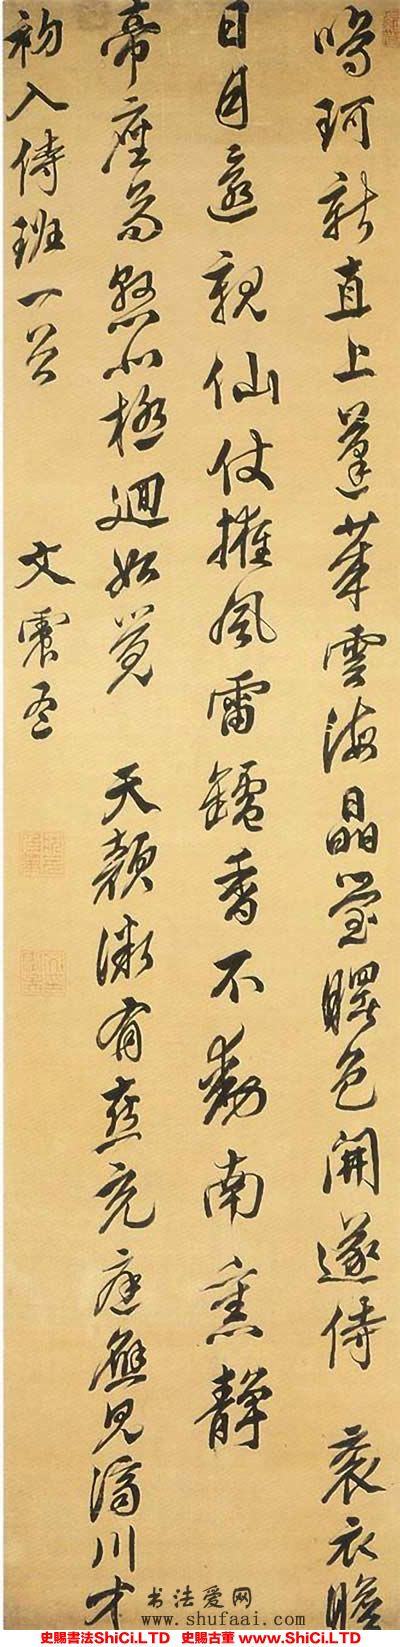 鳴珂新直上蓬萊雲海晶瑩曙色開遂侍 袞衣瞻
日月還親仙仗擁風雷鑪香不動南熏靜
帝座高懸北極迴始覺 天顏微有喜充庭應見濟川才
初入侍班一首 文震孟
书法爱网
www.shufaai.com
史賜書法ShiCi.LTD 史賜古董 www.ShiCi.LTD